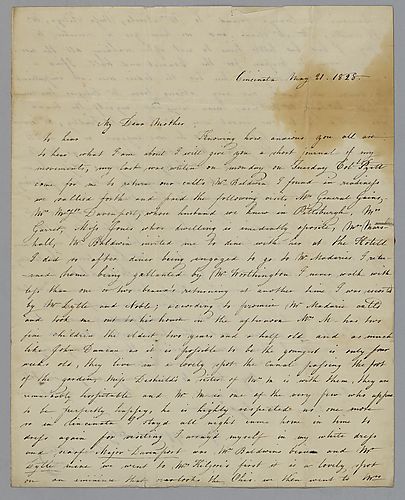 Cincinnata May 21. 1828.
My Dear Mother
to hear Knowing how anxious you all are
to hear what I am about I will give you a short journal of my
movements, my last was writen on monday on Tuesday Col.
came for me to return our calls Mrs Baldwin I found in readiness
we sallied forth and paid the following visits, Mrs General Gains,
Mrs Davenport, whose husband we knew in Pittsburgh, Mrs
Garret, Miss Jones whose dwelling is imediately oposite, Mrs Mars-
hall, Mrs Baldwin invited me to dine with her at the Hotell
I did so after dinner being engaged to go to Mr Madaries I retur-
ned home being gallanted by Mr Worthington I never walk with
less than one or two beaux's returning at another time I was escorted
by Mr Lytle and Noble; according to promise Mr Madarie called
and took me out to his house in the afternoon Mrs M. has two
fine children the eldest two years and a half old and as much
like John Duncan as it is possible to be the youngest is only four
weeks old, they live in a lovely spot the canal passing the foot
of the garden, Miss a sister of Mrs M is with them, they are
remarkably hospitable and Mr M is one of the very few who appear
to be perfectly happy, he is highly respected no one more
so in Cincinata stayd all night came home in time to
dress again for visiting I array'd myself in my white dress
and scarf Major Davenport was Mrs Baldwins beau and Mr
Lytle mine we went to Mrs first it is a lovely spot
on an eminence that overlooks the Ohio we then went to Mrs